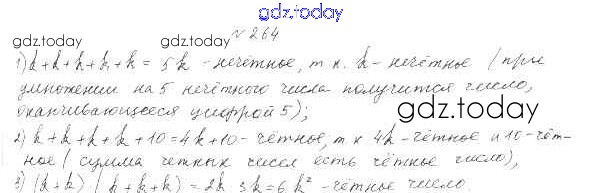 gdz.today
№ 264
gdz.today gdz.today
1) k+k+k+k+k = 5k - нечётное, т к. k - нечётное (при
умножении на 5 нечётного числа получится число,
оканчивающееся цифрой 5);
gdz.today
2) k+k+k+k+10=4k+10 - чётное, т к 4k - чётное и 10 - чёт-
ное (сумма четных чисел есть чётное число),
3) (k+k) (k+k+k) = 2k 3k=6k² - чётное число.